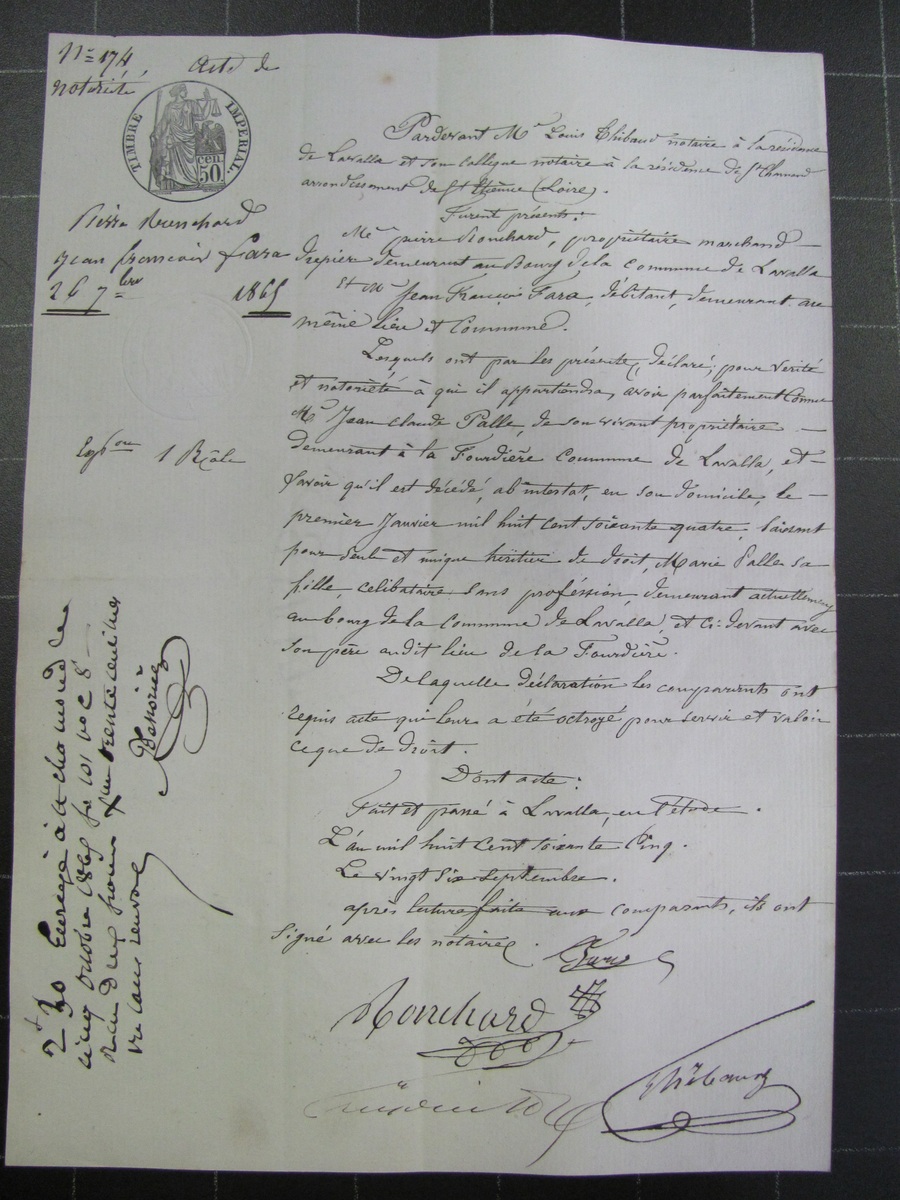 N= 174 Acte de
notoriété
TIMBRE IMPERIAL.
50 cen
Pierre Ronchard
Jean françois fara
26 7bre 1865
Expon 1 Rôle
Pardevant Me Louis Thibaud notaire à la résidence
de Lavalla et son Collègue notaire à la résidence de St Chamond
arrondissement de St Etienne (Loire).
Furent présents :
Mr pierre Ronchard, propriétaire marchand
drapier demeurant au Bourg de la commune de Lavalla
et Mr Jean François Fara, débitant, demeurant au
même lieu et Commune.
Lesquels ont par les présentes, déclaré, pour vérité
et notoriété à qui il appartiendra, avoir parfaitement Connu
Mr Jean Claude Palle, de son vivant propriétaire
demeurant à la Fourdière commune de Lavalla, et
Savoir qu'il est décédé, abintestat, en son domicile, le
premier Janvier mil huit cent soixante quatre, laissant
pour seule et unique héritier de droit, Marie Palle sa
fille, célibataire sans profession, demeurant actuellement
au bourg de la Commune de Lavalla, et Ci-devant avec
Son père audit lieu de la Fourdière.
De laquelle déclaration les comparants ont
requis acte qui leur a été octroyé pour servir et valoir
ce que de droit.
Dont acte :
Fait et passé à Lavalla, en l'étude.
L'an mil huit Cent soixante Cinq.
Le vingt Six Septembre.
après lecture faite aux comparants, ils ont
Signé avec les notaires.
Fara
Ronchard
Thibaud
2 f 20 Enregé à St chamond le
cinq octobre 1865 fo 101 vo c 8
reçu deux francs plus trente centimes